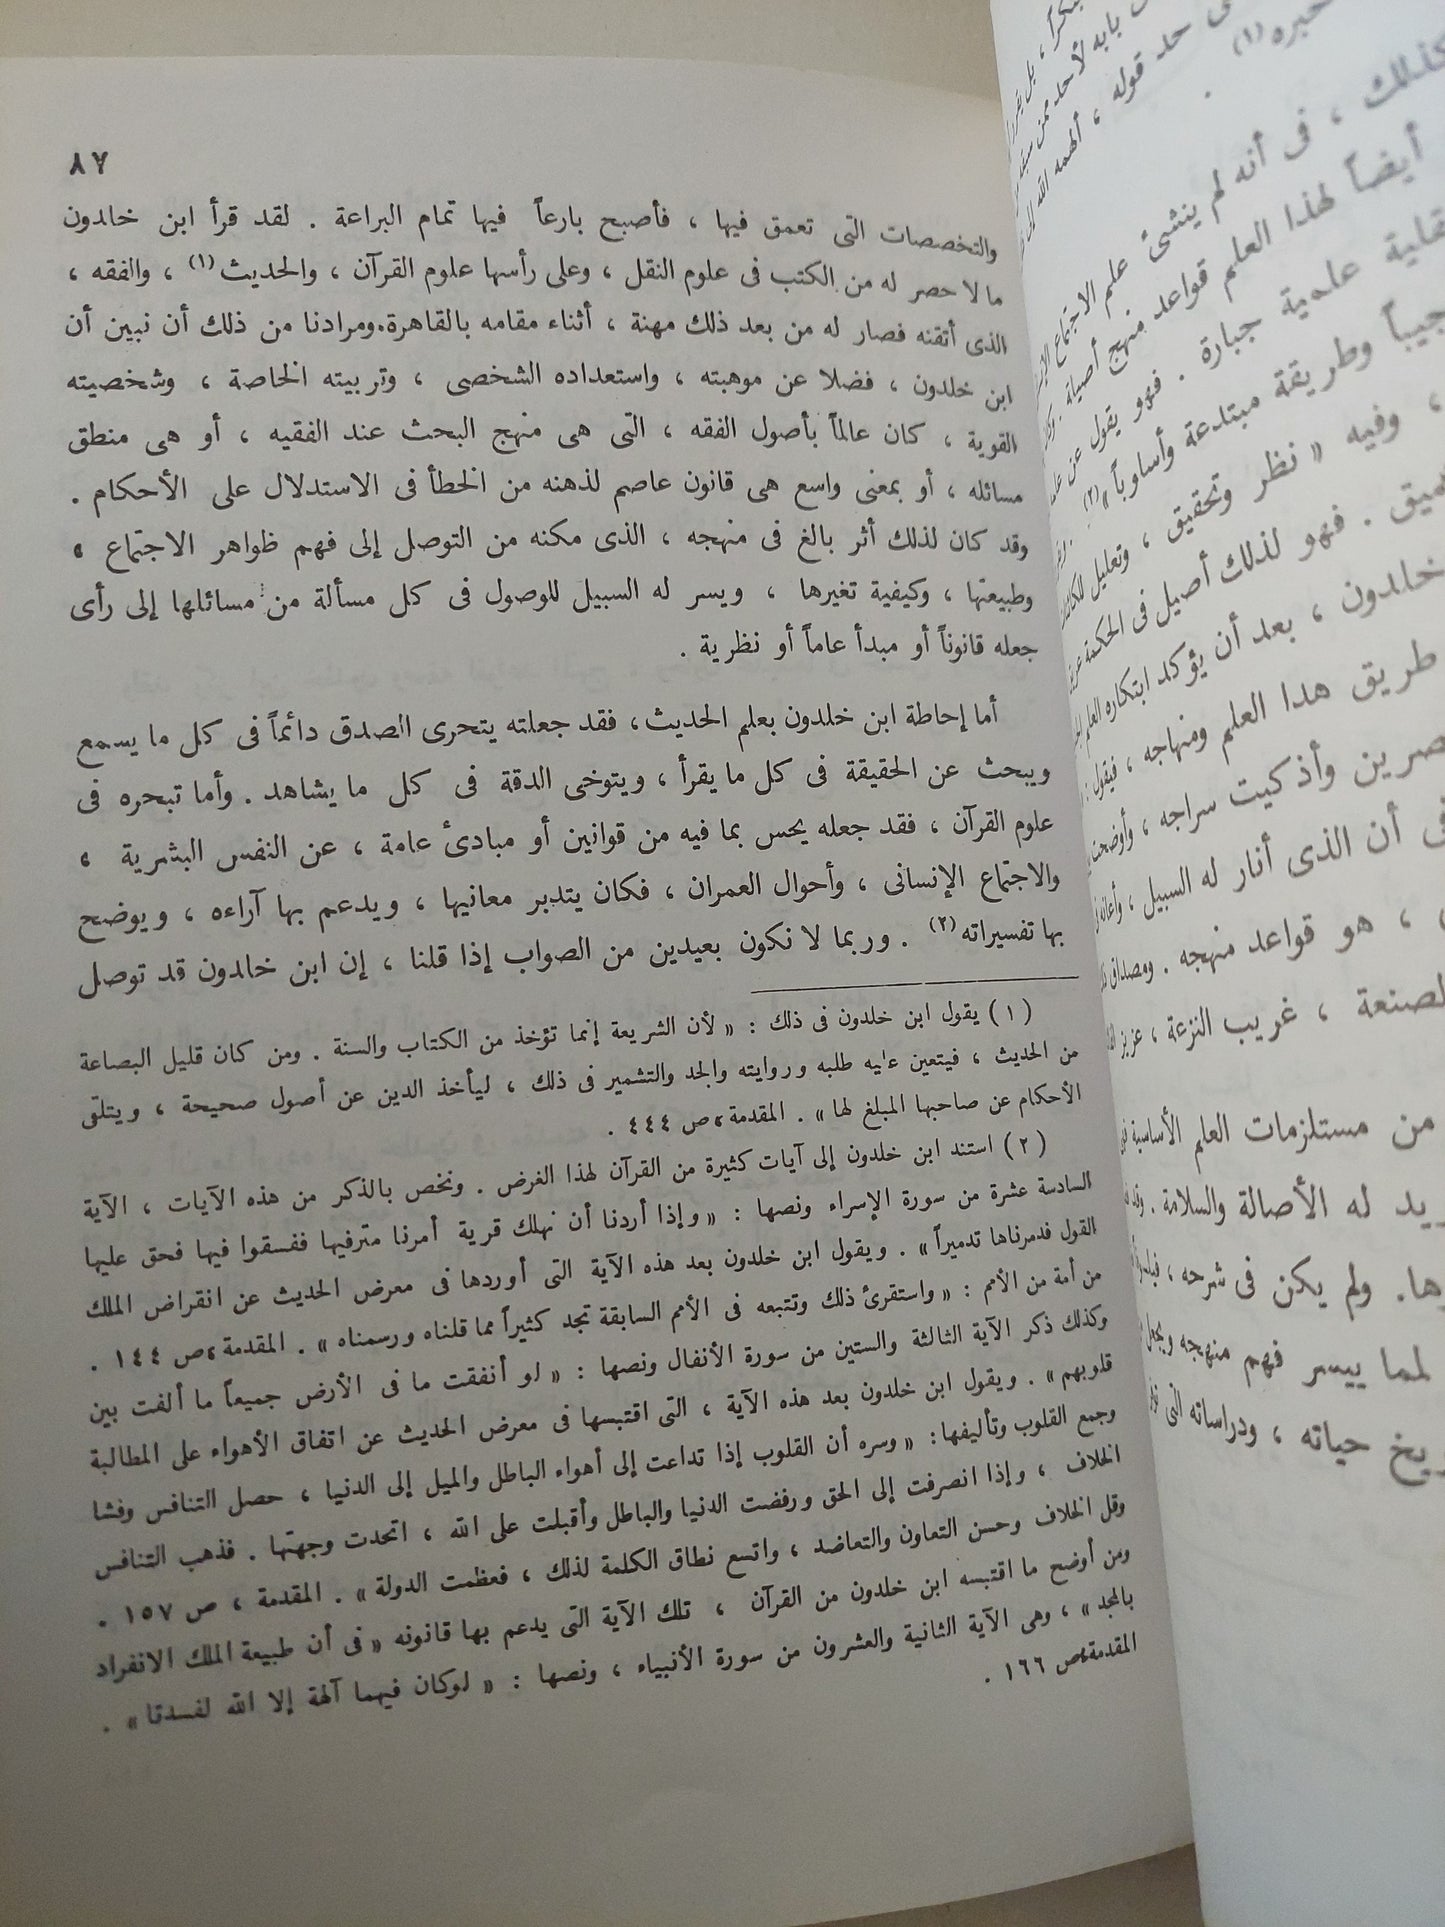 ٨٧
والتخصصات التى تعمق فيها ، فأصبح بارعاً فيها تمام البراعة . لقد قرأ ابن خلدون
ما لا حصر له من الكتب فى علوم النقل ، وعلى رأسها علوم القرآن ، والحديث (١) ، والفقه ،
الذى أتقنه فصار له من بعد ذلك مهنة ، أثناء مقامه بالقاهرة. ومرادنا من ذلك أن نبين أن
ابن خلدون ، فضلا عن موهبته ، واستعداده الشخصى ، وتربيته الخاصة ، وشخصيته
القوية ، كان عالماً بأصول الفقه ، التى هى منهج البحث عند الفقيه ، أو هى منطق
مسائله ، أو بمعنى واسع هى قانون عاصم لذهنه من الخطأ فى الاستدلال على الأحكام .
وقد كان لذلك أثر بالغ فى منهجه ، الذى مكنه من التوصل إلى فهم ظواهر الاجتماع ،
وطبيعتها ، وكيفية تغيرها ، ويسر له السبيل للوصول فى كل مسألة من مسائلها إلى رأى
جعله قانوناً أو مبدأ عاماً أو نظرية .
أما إحاطة ابن خلدون بعلم الحديث ، فقد جعلته يتحرى الصدق دائماً فى كل ما يسمع
ويبحث عن الحقيقة فى كل ما يقرأ ، ويتوخى الدقة فى كل ما يشاهد . وأما تبحره فى
علوم القرآن ، فقد جعله يحس بما فيه من قوانين أو مبادئ عامة ، عن النفس البشرية ،
والاجتماع الإنسانى ، وأحوال العمران ، فكان يتدبر معانيها ، ويدعم بها آراءه ، ويوضح
بها تفسيراته (٢) . وربما لا نكون بعيدين من الصواب إذا قلنا ، إن ابن خلدون قد توصل
(١) يقول ابن خلدون فى ذلك : « لأن الشريعة إنما تؤخذ من الكتاب والسنة . ومن كان قليل البصاعة
من الحديث ، فيتعين عليه طلبه وروايته والجد والتشمير فى ذلك ، ليأخذ الدين عن أصول صحيحة ، ويتلقى
الأحكام عن صاحبها المبلغ لها » . المقدمة ، ص ٤٤٤ .
(٢) استند ابن خلدون إلى آيات كثيرة من القرآن لهذا الغرض . ونخص بالذكر من هذه الآيات ، الآية
السادسة عشرة من سورة الإسراء ونصها : « وإذا أردنا أن نهلك قرية أمرنا مترفيها ففسقوا فيها فحق عليها
القول فدمرناها تدميراً » . ويقول ابن خلدون بعد هذه الآية التى أوردها فى معرض الحديث عن انقراض الملك
من أمة من الأمم : « واستقرئ ذلك وتتبعه فى الأمم السابقة تجد كثيراً مما قلناه ورسمناه » . المقدمة ، ص ١٤٤ .
وكذلك ذكر الآية الثالثة والستين من سورة الأنفال ونصها : « لو أنفقت ما فى الأرض جميعاً ما ألفت بين
قلوبهم » . ويقول ابن خلدون بعد هذه الآية ، التى اقتبسها فى معرض الحديث عن اتفاق الأهواء على المطالبة
وجمع القلوب وتأليفها : « وسره أن القلوب إذا تداعت إلى أهواء الباطل والميل إلى الدنيا ، حصل التنافس وفشا
الخلاف ، وإذا انصرفت إلى الحق ورفضت الدنيا والباطل وأقبلت على الله ، اتحدت وجهتها . فذهب التنافس
وقل الخلاف وحسن التعاون والتعاضد ، واتسع نطاق الكلمة لذلك ، فعظمت الدولة » . المقدمة ، ص ١٥٧ .
ومن أوضح ما اقتبسه ابن خلدون من القرآن ، تلك الآية التى يدعم بها قانونه « فى أن طبيعة الملك الانفراد
بالمجد » ، وهى الآية الثانية والعشرون من سورة الأنبياء ، ونصها : « لوكان فيهما آلهة إلا الله لفسدتا » .
المقدمة ، ص ١٦٦ .
بابه لأحد ممن
حد قوله ، ألهمه الله
(١) .
كذلك ، فى أنه لم ينشئ علم الاجتماع
أيضاً لهذا العلم قواعد منهج أصيلة .
علمية جبارة . فهو يقول عن
وطريقة مبتدعة وأسلوباً » (٢) .
، وفيه « نظر وتحقيق ، وتعليل للكائنات
. فهو لذلك أصيل فى الحكمة
خلدون ، بعد أن يؤكد ابتكاره العلم
طريق هذا العلم ومنهاجه ، فيقول :
وأذكيت سراجه ، وأوضحت
أن الذى أنار له السبيل ،
، هو قواعد منهجه . ومصداق
الصنعة ، غريب النزعة ، عزيز
من مستلزمات العلم الأساسية
له الأصالة والسلامة .
. ولم يكن فى شرحه ،
لما ييسر فهم منهجه
حياته ، ودراساته التى